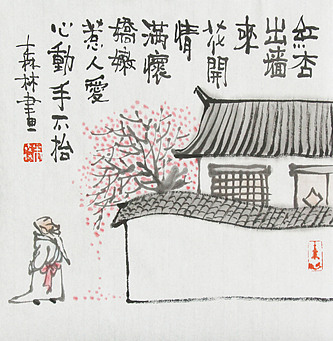 紅杏
出墻
來
花開
情
滿懷
嬌嫩
惹人愛
心動手不抬
森林畫